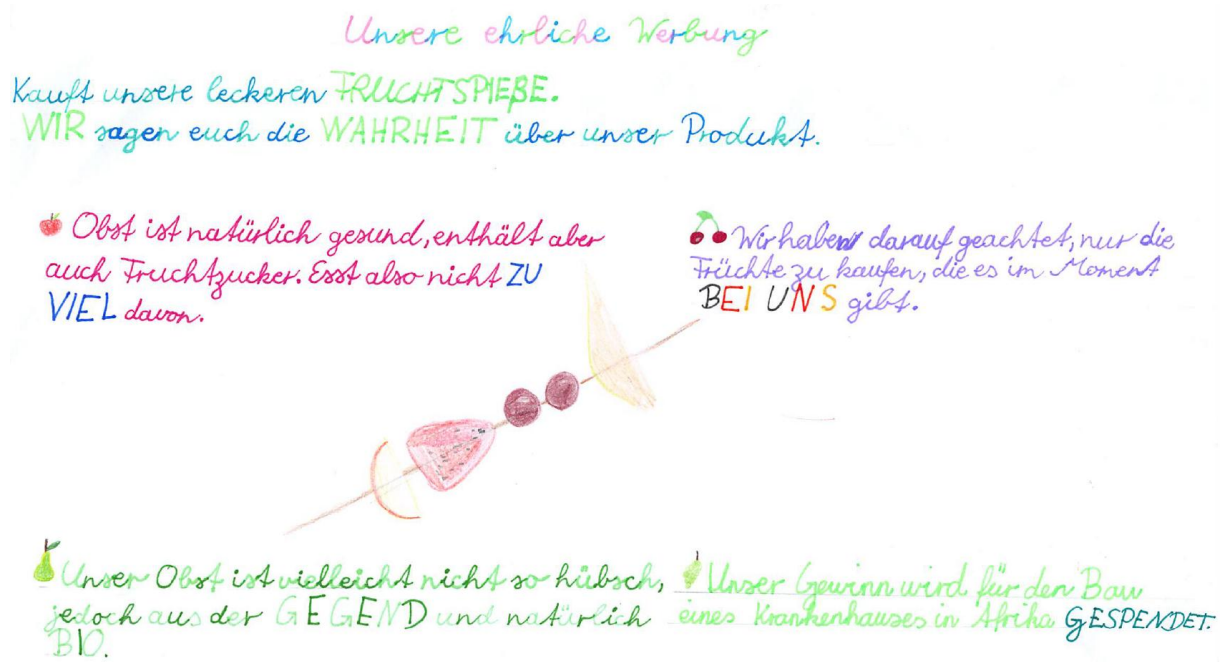 Unsere ehrliche Werbung
Kauft unsere leckeren FRUCHTSPIEßE.
WIR sagen euch die WAHRHEIT über unser Produkt.
Obst ist natürlich gesund, enthält aber
auch Fruchtzucker. Esst also nicht ZU
VIEL davon.
Wir haben darauf geachtet, nur die
Früchte zu kaufen, die es im Moment
BEI UNS gibt.
Unser Obst ist vielleicht nicht so hübsch,
jedoch aus der GEGEND und natürlich
BIO.
Unser Gewinn wird für den Bau
eines Krankenhauses in Afrika GESPENDET.